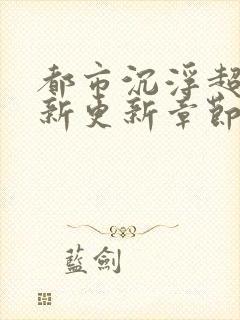 都市沉浮超
新更新章節
藍劍